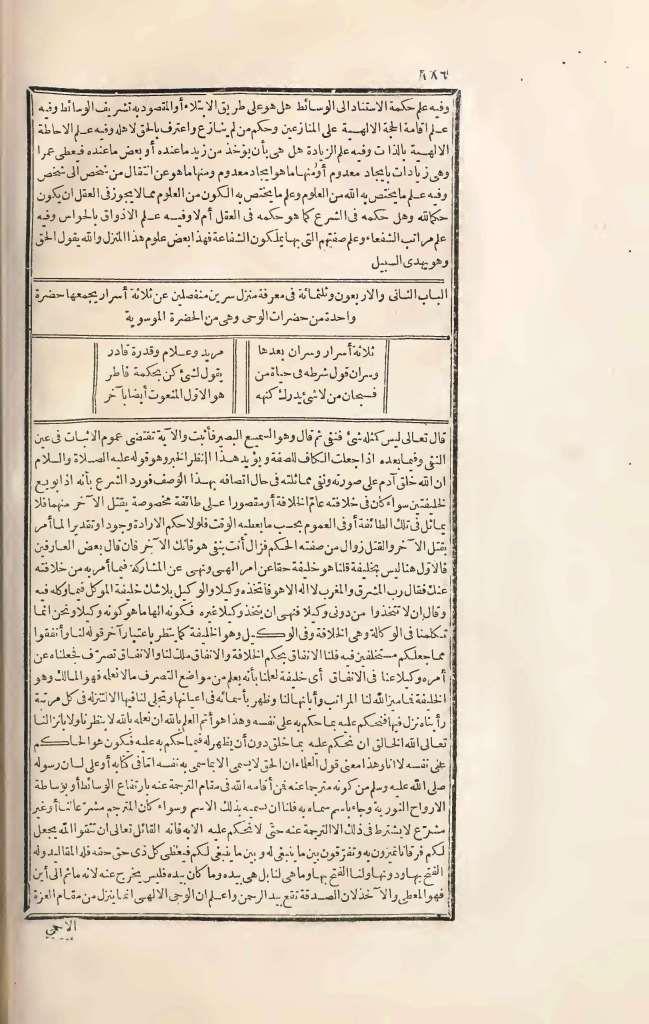 ٨٨٦
وفيه علم حكمة الاستناد الى الوسائط هل هو على طريق الابتلاء أو المقصود به تشريف الوسائط وفيه
علم اقامة الحجة الالهية على المنازعين وحكم من لم ينازع واعترف بالحق لاهله وفيه علم الاحاطة
الالهية بالذات وفيه علم الزيادة هل هى بأن يؤخذ من زيد ما عنده أو بعض ما عنده فيعطى عمرا
وهى زيادات بايجاد معدوم أو منها ما هو ايجاد معدوم ومنها ما هو عن انتقال من شخص الى شخص
وفيه علم ما يختص به الله من العلوم وعلم ما يختص به الكون من العلوم مما لا يجوز فى العقل ان يكون
حكما لله وهل حكمه فى الشرع كما هو حكمه فى العقل أم لا وفيه علم الاذواق بالحواس وفيه
علم مراتب الشفعاء وعلم صفتهم التى بها يملكون الشفاعة فهذا بعض علوم هذا المنزل والله يقول الحق
وهو يهدى السبيل
الباب الثانى والاربعون وثلثمائة فى معرفة منزل سرين منفصلين عن ثلاثة أسرار يجمعها حضرة
واحدة من حضرات الوحى وهى من الحضرة الموسوية
ثلاثة أسرار وسران بعدها مريد وعلام وقدرة قادر
وسران قول شرطه فى حياة من يقول لشئ كن بحكمة فاطر
فسبحان من لا شئ يدرك كنهه هو الاول المنعوت أيضا بآخر
قال تعالى ليس كمثله شئ فنفى ثم قال وهو السميع البصير فأثبت والآية تقتضى عموم الاثبات فى عين
النفى وفيما بعده اذا جعلت الكاف للصفة ويؤيد هذا النظر الخبر وهو قوله عليه الصلاة والسلام
ان الله خلق آدم على صورته ونفى مماثلته فى حال اتصافه بهذا الوصف فورد الشرع بأنه اذا بويع
لخليفتين سواء كان فى خلافته عام الخلافة أو مقصورا على طائفة مخصوصة بقتل الآخر منهما فلا
يماثل فى تلك الطائفة أو فى العموم بحسب ما يعطيه الوقت فلولا حكم الارادة وجودا وتقديرا لما أمر
بقتل الآخر والقتل زوال من صفته الحكم فزال أنت بنفى هو فانك الآخر فان قال بعض العارفين
فالاول هنا ليس بخليفة قلنا هو خليفة حقا عن امر الهى ونهى عن المشاركة فيما أمر به من خلافته
عنك فقال رب المشرق والمغرب لا اله الا هو فاتخذه وكيلا والوكيل بلا شك خليفة الموكل فيما وكله فيه
وقال ان لا تتخذوا من دونى وكيلا فنهى ان يتخذ وكيلا غيره فكونه الها ما هو كونه وكيلا ونحن انما
تكلمنا فى الوكالة وهى الخلافة وفى الوكيل وهو الخليفة كما ينظر باعتبار آخر قوله لنا وأنفقوا
مما جعلكم مستخلفين فيه فلنا الانفاق بحكم الخلافة والانفاق ملك لنا والانفاق تصرف فجعلناه عن
أمره وكيلا عنا فى الانفاق أى خليفة لعلمنا بأنه يعلم من مواضع التصرف مالا نعلمه فهو المالك وهو
الخليفة فما ميز الله لنا المراتب وأبانها لنا وظهر بأسمائه فى اعيانها وتجلى لنا فيها الا لننزله فى كل مرتبة
رأيناه نزل فيها فنحكم عليه بما حكم به على نفسه وهذا هو أتم العلم بالله ان نعلمه بالله لا بنظرنا ولا بانزالنا
تعالى الله الخالق ان نحكم عليه بما خلق دون أن يظهر له فيما نحكم به عليه فيكون هو الحاكم
على نفسه لا انا وهذا معنى قول العلماء ان الحق لا يسمى الا بما سمى به نفسه اما فى كتابه أو على لسان رسوله
صلى الله عليه وسلم من كونه مترجما عنه فمن أقامه الله فى مقام الترجمة عنه بارتفاع الوسائط أو بوساطة
الارواح النورية وجاء باسم سماه به فلنا ان نسميه بذلك الاسم وسواء كان المترجم مشرعا لنا أو غير
مشرع لا يشترط فى ذلك الا الترجمة عنه حتى لا نحكم عليه الا به فانه القائل تعالى ان تتقوا الله يجعل
لكم فرقانا تميزون به وتفرقون بين ما ينبغى له وبين ما ينبغى لكم فيعطى كل ذى حق حقه فله المقاليد وله
الفتح بها ودونها ولنا الفتح بها وما هى لنا بل هى بيده وما كان بيده فليس يخرج عنه لانه ما ثم الى أين
فهو المعطى والآخذ لان الصدقة تقع بيد الرحمن واعلم ان الوحى الالهى انما ينزل من مقام العزة
الاحمى